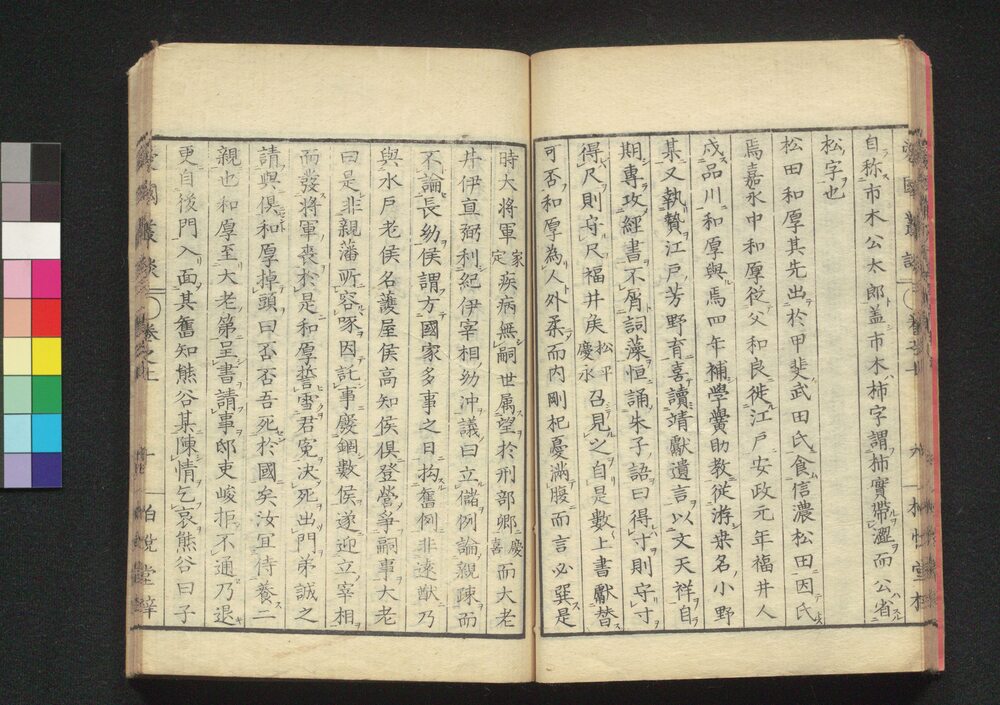 自称市木公太郎盖市木柿字謂柿實帶澀而公省
松字也
松田和厚其先出於甲斐武田氏食信濃松田因氏
焉嘉永中和厚從父和良徙江戶安政元年福井人
戍品川和厚與焉四年補學黌助教從游桒名小野
某又執贄江戶芳野育喜讀靖獻遺言以文天祥自
期專攻經書不屑詞藻恒誦朱子語曰得寸則守寸
得尺則守尺福井矦松平慶永召見之自是數上書獻替
可否和厚為人外柔而内剛杞憂滿腹而言必巽是
時大将軍家定疾病無嗣世属望於刑部卿慶喜而大老
井伊直弼利紀伊宰相幼冲議曰立儲例論親疎而
不論長幼侯謂方國家多事之日拘舊例非遠猷乃
與水戶老侯名護屋侯高知侯俱登營爭嗣事大老
曰是非親藩所容啄因託事廢錮數侯遂迎立宰相
而發将軍喪於是和厚誓雪君冤决死出門弟誠之
請與俱和厚掉頭曰否否吾死於國矣汝宜侍養二
親也和厚至大老第呈書請事邸吏峻拒不通乃退
更自後門入面其舊知熊谷某陳情乞哀熊谷曰子
卷之上
一
柏悅堂梓